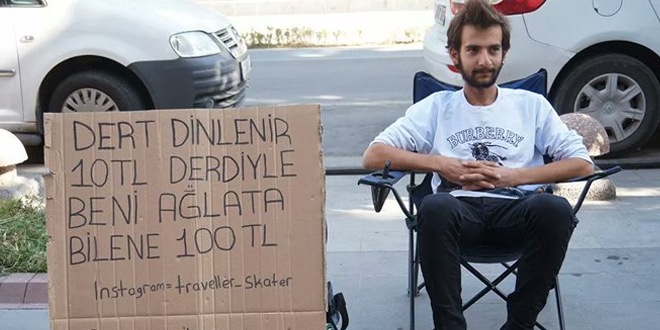 DERT DİNLENİR
10TL DERDİYLE
BENİ AĞLATA
BİLENE 100TL
Instagram=traveller_skater
BURBERRY